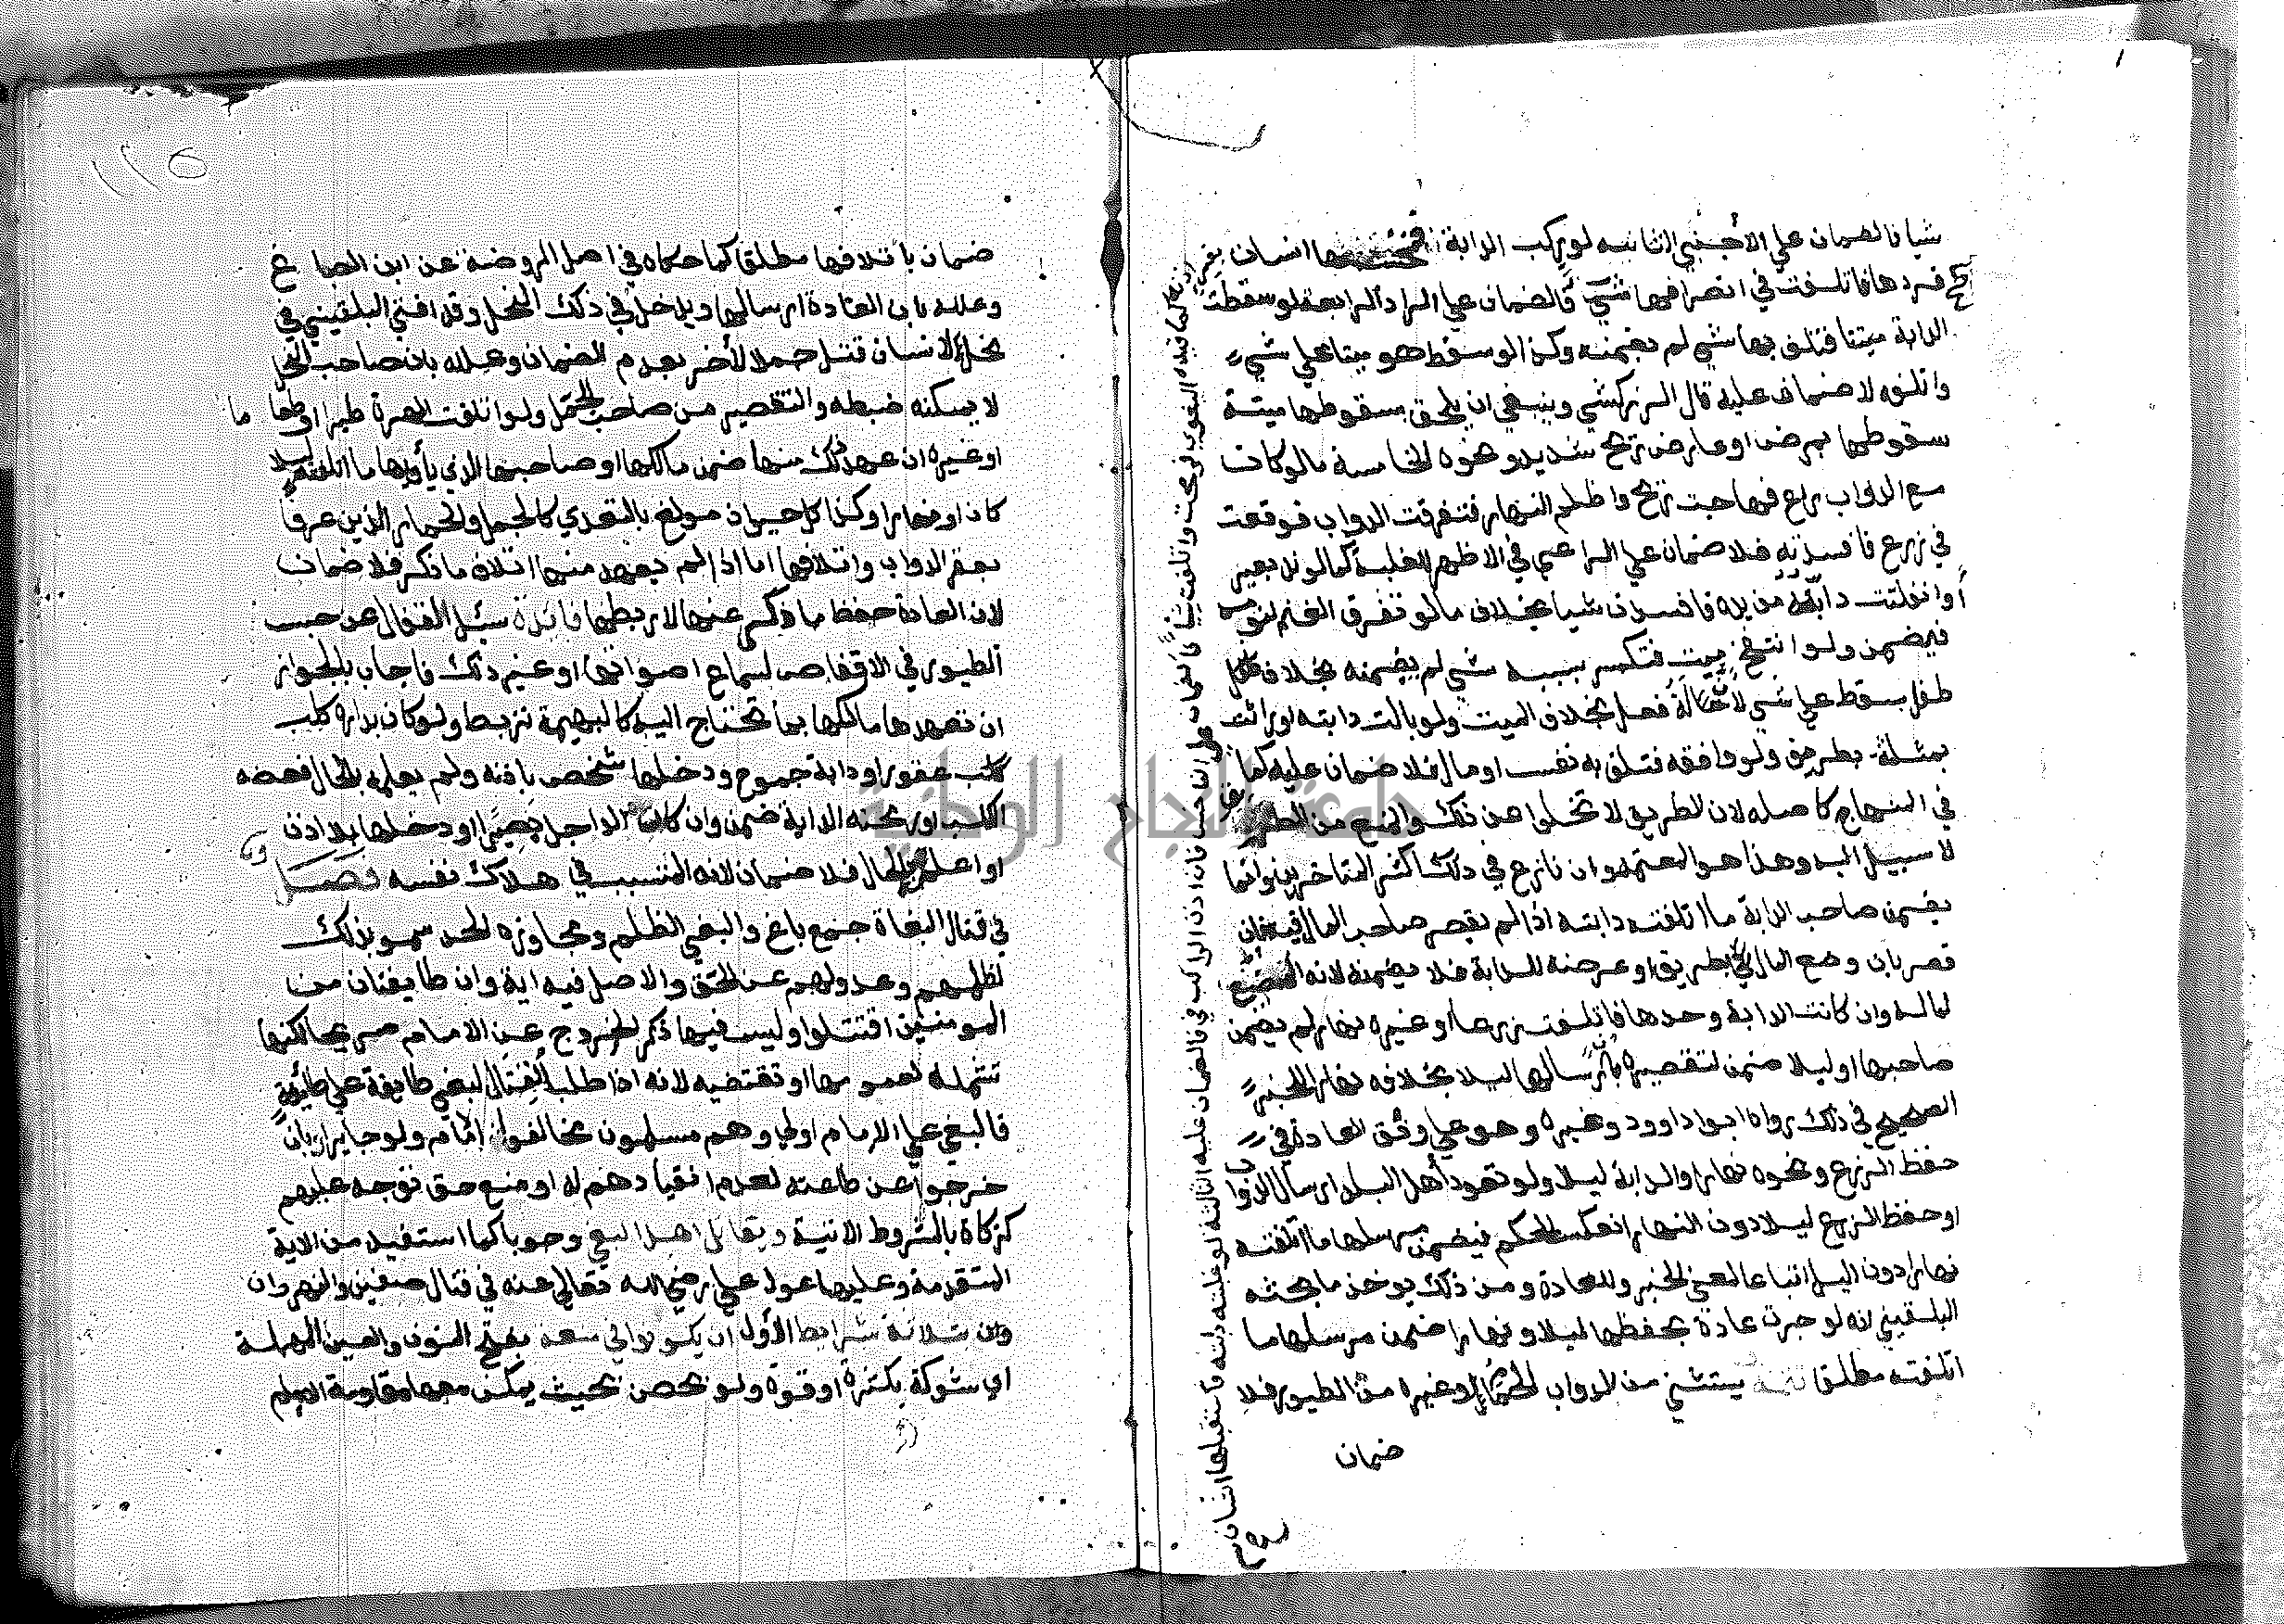 شيا فالضمان علي الأجنبي الثانيه لو ركب الدابة فنخسها انسان بغير
فردها فاتلفت في انصرافها شي فالضمان علي الراد الرابعة لو سقطت
الدابة ميتا فتلف بها شي لم يضمنه وكذا لو سقط هو ميتا علي شي
واتلفه لا ضمان عليه قال الزركشي وينبغي ان يلحق بسقوطها ميتة
سقوطها بمرض او عارض ريح شديد وهذه الخامسة ما لو كان
مع الدواب راع فهاجت ريح واظلم النهار فتفرقت الدواب فوقعت
في زرع فافسدته فلا ضمان علي الراعي في الاظهر للغلبة كما لو ند بعير
أو انفلتت دابة من يده فافسدت شيا بخلاف ما لو تفرق الغنم لنومه
فيضمن ولو انتفخ ميت فتكسر بسببه شي لم يضمنه بخلاف
طفل سقط علي شي لأن له فعل بخلاف الميت ولو بالت دابته او راثت
بطريق ولو واقفه فتلف به نفس او مال فلا ضمان عليه كما
في المنهاج كاصله لان الطريق لا تخلوا عن ذلك والمنع من الطريق
لا سبيل اليه وهذا هو المعتمد وان نازع في ذلك اكثر المتاخرين وانما
يضمن صاحب الدابة ما اتلفته دابته اذا لم يقصر صاحب المال فيه فان
قصر بان وضع المال بطريق او عرضه للدابة فلا يضمنه لانه المضيع
لماله وان كانت الدابة وحدها فاتلفت زرعا أو غيره نهارا لم يضمن
صاحبها او ليلا ضمن لتقصيره بارسالها ليلا بخلافه نهارا للخبر
الصحيح في ذلك رواه ابوا داوود وغيره وهو علي وفق العادة في
حفظ الزرع ونحوه نهارا والدابة ليلا ولو تعود أهل البلد ارسال الدواب
او حفظ الزرع ليلا دون النهار انعكس الحكم فيضمن مرسلها ما اتلفته
نهارا دون الليل اتباعا لمعني الخبر وللعادة ومن ذلك يوخذ ما بحثه
البلقيني انه لو جرت عادة بحفظها ليلا ونهارا ضمن مرسلها ما
اتلفته مطلقا يستثني من الدواب الحمام وغيره من الطيور فلا
ضمان
ضمان باتلافها مطلقا كما حكاه في اصل الروضة عن ابن الصباغ
وعلله بان العادة ارسالها ويدخل في ذلك النحل وقد افتي البلقيني في
نحل لانسان قتل جملا لأخر بعدم الضمان وعلله بان صاحب النحل
لا يمكنه ضبطه والتقصير من صاحب الجمل ولو اتلفت الهرة طيرا او طعاما
او غيره ان عهد ذلك منها ضمن مالكها او صاحبها الذي يأويها ما اتلفته ليلا
كان او نهارا وكذا كل حيوان مولع بالتعدي كالجمل والحمار الذين عرفا
بعقر الدواب واتلافها اما اذا لم يعهد منها اتلاف ما ذكر فلا ضمان
لان العادة حفظ ما ذكر عنها لا ربطها فائدة سئل القفال عن حبس
الطيور في الاقفاص لسماع اصواتها او غير ذلك فاجاب بالجواز
ان تعهدها مالكها بما تحتاج اليه كالبهيمة تربط ولو كان بداره كلب
كلب عقور او دابة جموح ودخلها شخص باذنه ولم يعلم بالحال فعضه
الكلب او رمحته الدابة ضمن وان كان الداخل بصيرا او دخلها بلا اذن
او اعلم بالحال فلا ضمان لانه المتسبب في هلاك نفسه فصل
في قتال البغاة جمع باغ والبغي الظلم ومجاوزه الحد سموا بذلك
لظلمهم وعدولهم عن الحق والاصل فيه اية وان طايفتان من
المومنين اقتتلوا وليس فيها ذكر الخروج عن الامام صريحا لكنها
تشمله لعمومها او تقتضيه لانه اذا طلب القتال لبغي طايفة علي طائفة
فالبغي علي الامام اولي وهم مسلمون مخالفوا إمام ولو جايرا بان
خرجوا عن طاعته لعدم انقيادهم له او منع حق توجه عليهم
كزكاة بالشروط الاتية ويقاتل اهل البغي وجوبا كما استفيد من الاية
المتقدمة وعليها عول علي رضي الله تعالي عنه في قتال صفين والنهروان
بثلاثة شرايط الأول ان يكونوا في منعة بفتح النون والعين المهملة
اي شوكة بكثرة او قوة ولو بحصن بحيث يمكن معها مقاومة الامام